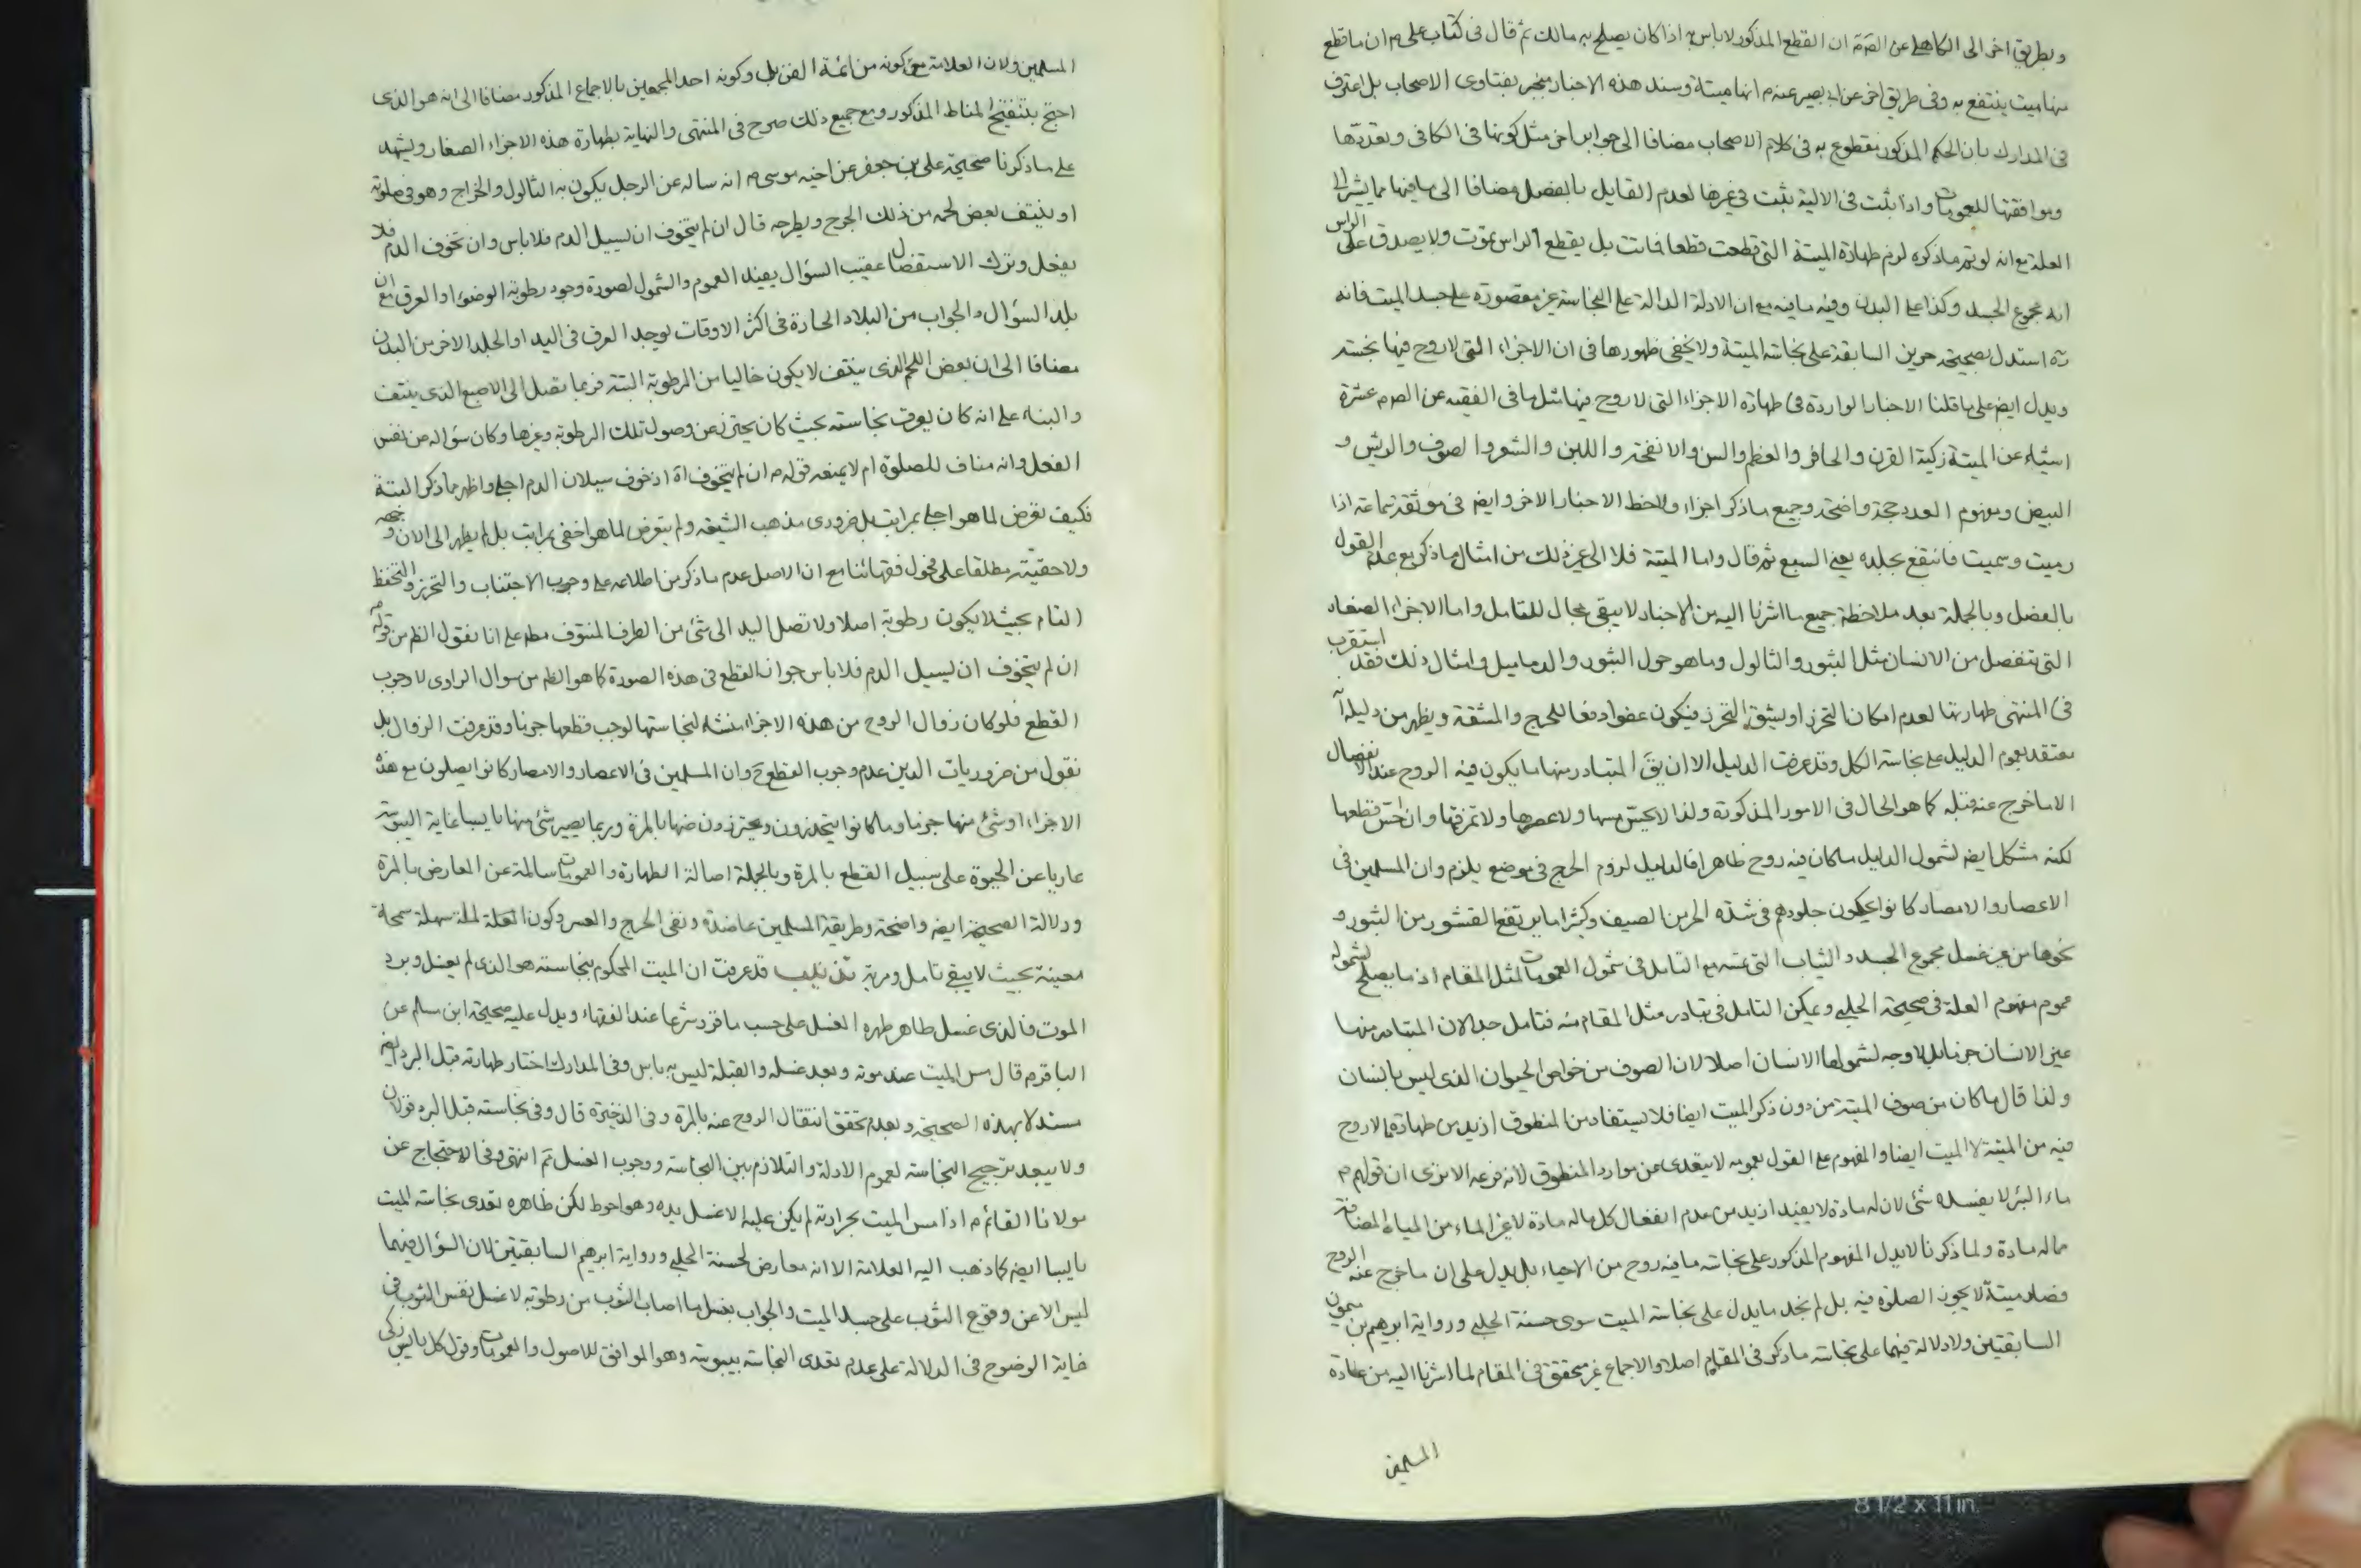 وبطريق اخر الى الكاهلى عن الصّم ان القطع المذكور لا باس به اذا كان يصلح به مالك ثم قال فى كتاب على م ان ما قطع
منها ميت ينتفع به وفى طريق اخر عن ابى بصير عنه م انها ميتة وسند هذه الاخبار منجبر بفتاوى الاصحاب بل اعترف
فى المدارك بان الحكم المذكور مقطوع به فى كلام الاصحاب مضافا الى جوابر اخر مثل كونها فى الكافى وتعددها
وموافقتها للعمومات واذا ثبت فى الالية يثبت فى غيرها لعدم القايل بالفصل مضافا الى ما فيها مما يشير الى
العلة مع انه لو تم ماذكره لزم طهارة الميتة التى قطعت قطعا فماتت بل يقطع الراس يموت ولا يصدق على الراس
انه مجموع الجسد وكذا على البدن وفيه ما فيه مع ان الادلة الدالة على النجاسة غير مقصورة على جسد الميت فانه
ره استدل بصحيحة حريز السابقة على نجاسة الميتة ولا يخفى ظهورها فى ان الاجزاء التى لا روح فيها نجسة
ويدل ايض على ما قلنا الاخبار الواردة فى طهارة الاجزاء التى لا روح فيها مثل ما فى الفقيه عن الصم م عشرة
اشياء عن الميتة زكية القرن والحافر والعظم والسن والانفحة واللبن والشعر والصوف والريش و
البيض ومفهوم العدد حجة واضحة وجميع ماذكر اجزاء ولاحظ الاخبار الاخر وايض فى موثقة سماعة اذا
رميت وسميت فانتفع بجلده يعنى السبع ثم قال واما الميتة فلا الى غير ذلك من امثال ما ذكر مع عدم القول
بالفصل وبالجملة بعد ملاحظة جميع ما اشرنا اليه من الاخبار لا يبقى مجال للتامل واما الاجزاء الصغار
التى تنفصل من الانسان مثل البثور والثالول وما هو حول البثور والدماميل وامثال ذلك فقد استقرب
فى المنتهى طهارتها لعدم امكان التحرز او يشق التحرز فيكون عفوا دفعا للحرج والمشقة ويظهر من دليله انه
معتقد بعموم الدليل على نجاسة الكل وقد عرفت الدليل الا ان يق المتبادر منها ما يكون فيه الروح عند الانفصال
الا ما خرج عنه قبله كما هو الحال فى الامور المذكورة ولذا لا يحس بمسها ولا عصرها ولا تمزقها وان احس قطعها
لكنه مشكل ايض لشمول الدليل ما كان فيه روح ظاهرا فالدليل لزوم الحرج فى موضع يلزم وان المسلمين فى
الاعصار والامصار كانوا يحكون جلودهم فى شدة الحر من الصيف وكثيرا ما يرتفع القشور من البثور و
نحوها من غير غسل مجموع الجسد والثياب التى تمسه مع التامل فى شمول العمومات لمثل المقام اذ ما يصلح لشموله
عموم مفهوم العلة فى صحيحة الحلبى ويمكن التامل فى تبادر مثل المقام منه فتامل جدا لان المتبادر منها
غير الانسان جزما بل لا وجه لشمولها الانسان اصلا لان الصوف من خواص الحيوان الذى ليس بانسان
ولذا قال ما كان من صوف الميتة من دون ذكر الميت ايضا فلا يستفاد من المنطوق ازيد من طهارة ما لا روح
فيه من الميتة لا الميت ايضا والمفهوم على القول بعمومه لا يتعدى من موارد المنطوق لانه فرعه الا ترى ان قولهم م
ماء البئر لا يفسده شئ لان له مادة لا يفيد ازيد من عدم انفعال كل ماله مادة لا غير الماء من المياه المضافة
مما له مادة ولما ذكرنا لا يدل المفهوم المذكور على نجاسة ما فيه روح من الاحياء بل يدل على ان ما خرج عنه الروح
فصار ميتة لا يجوز الصلوة فيه بل لم نجد ما يدل على نجاسة الميت سوى حسنة الحلبى ورواية ابرهيم بن ميمون
السابقتين ولا دلالة فيهما على نجاسة ماذكر فى المقام اصلا والاجماع غير محقق فى المقام لما اشرنا اليه من عادة
المسلمين
المسلمين ولان العلامة مع كونه من ائمة الفن بل وكونه احد المجمعين بالاجماع المذكور مضافا الى انه هو الذى
احتج بتنقيح المناط المذكور ومع جميع ذلك صرح فى المنتهى والنهاية بطهارة هذه الاجزاء الصغار ويشهد
على ماذكرنا صحيحة على بن جعفر عن اخيه موسى م انه ساله عن الرجل يكون به الثالول والخراج وهو فى صلوته
او ينتف بعض لحمه من ذلك الجرح ويطرحه قال ان لم يتخوف ان يسيل الدم فلا باس وان تخوف الدم فلا
يفعل وترك الاستفصال عقيب السؤال يفيد العموم والشمول لصورة وجود رطوبة الوضوء او العرق مع ان
بلد السؤال والجواب من البلاد الحارة فى اكثر الاوقات يوجد العرق فى اليد او الجلد الاخر من البدن
مضافا الى ان بعض اللحم الذى ينتف لا يكون خاليا من الرطوبة البتة فربما تصل الى الاصبع الذى ينتف
والبناء على انه كان يعرف نجاسته بحيث كان يحترز عن وصول تلك الرطوبة وغيرها وكان سؤاله من نفس
الفعل وانه مناف للصلوة ام لا يمنعه قوله م ان لم يتخوف اه اذ خوف سيلان الدم اجلى واظهر مما ذكر البتة
فكيف تعرض لما هو اجلى بمراتب بل ضرورى مذهب الشيعة ولم يتعرض لما هو اخفى بمراتب بل لم يظهر الى الان وجهه
ولا حقيته مطلقا على فحول فقهائنا مع ان الاصل عدم ماذكر من اطلاعه على وجوب الاجتناب والتحرز والتحفظ
التام بحيث لا يكون رطوبة اصلا ولا تصل اليد الى شئ من الطرف المنتوف مطم على انا نقول الظم من قوله م
ان لم يتخوف ان يسيل الدم فلا باس جواز القطع فى هذه الصورة كما هو الظم من سوال الراوى لا وجوب
القطع فلو كان زوال الروح من هذه الاجزاء منشاء لنجاستها لوجب قطعها جزما وقد عرفت الزوال بل
نقول من ضروريات الدين عدم وجوب القطع ح وان المسلمين فى الاعصار والامصار كانوا يصلون مع هذه
الاجزاء او شئ منها جزما وما كانوا يتحذرون ويحترزون منها بالمرة وربما يصير شئ منها يابسا غاية اليبوسة
عاريا عن الحيوة على سبيل القطع بالمرة وبالجملة اصالة الطهارة والعمومات سالمة عن المعارض بالمرة
ودلالة الصحيحة ايض واضحة وطريقة المسلمين عاضدة ونفى الحرج والعسر وكون الملة سهلة سمحة
معينة بحيث لا يبقى تامل ومرية تذنيب قد عرفت ان الميت المحكوم بنجاسته هو الذى لم يغسل وبرد
الموت فالذى غسل طاهر طهره الغسل على حسب ما قرر شرعا عند الفقهاء ويدل عليه صحيحة ابن مسلم عن
الباقر م قال مس الميت عند موته وبعد غسله والقبلة ليس به باس وفى المدارك اختار طهارته قبل البرد ايض
مستدلا بهذه الصحيحة وبعدم تحقق انتقال الروح عنه بالمرة وفى الذخيرة قال وفى نجاسته قبل البرد قولان
ولا يبعد ترجيح النجاسة لعموم الادلة والتلازم بين النجاسة ووجوب الغسل ثم انتهى وفى الاحتجاج عن
مولانا القائم م اذا مس الميت بحرارته لم يكن عليه الا غسل يده وهو احوط لكن ظاهره تعدى نجاسة الميت
يابسا ايض كما ذهب اليه العلامة الا انه معارض لحسنة الحلبى ورواية ابرهيم السابقتين لان السؤال فيهما
ليس الا عن وقوع الثوب على جسد الميت والجواب بغسل ما اصاب الثوب من رطوبته لا غسل نفس الثوب فى
غاية الوضوح فى الدلالة على عدم تعدى النجاسة بيبوسته وهو الموافق للاصول والعمومات وقوله كل يابس زكى